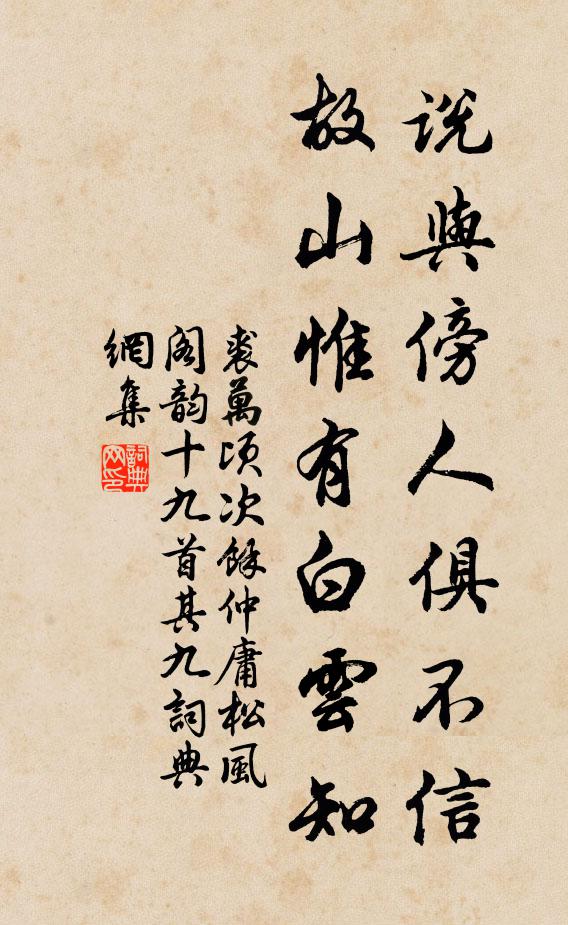 說與傍人俱不信
故山惟有白雲知
裘萬頃次餘仲庸松風
閣韵十九首其九詞典
網集
詞典網印